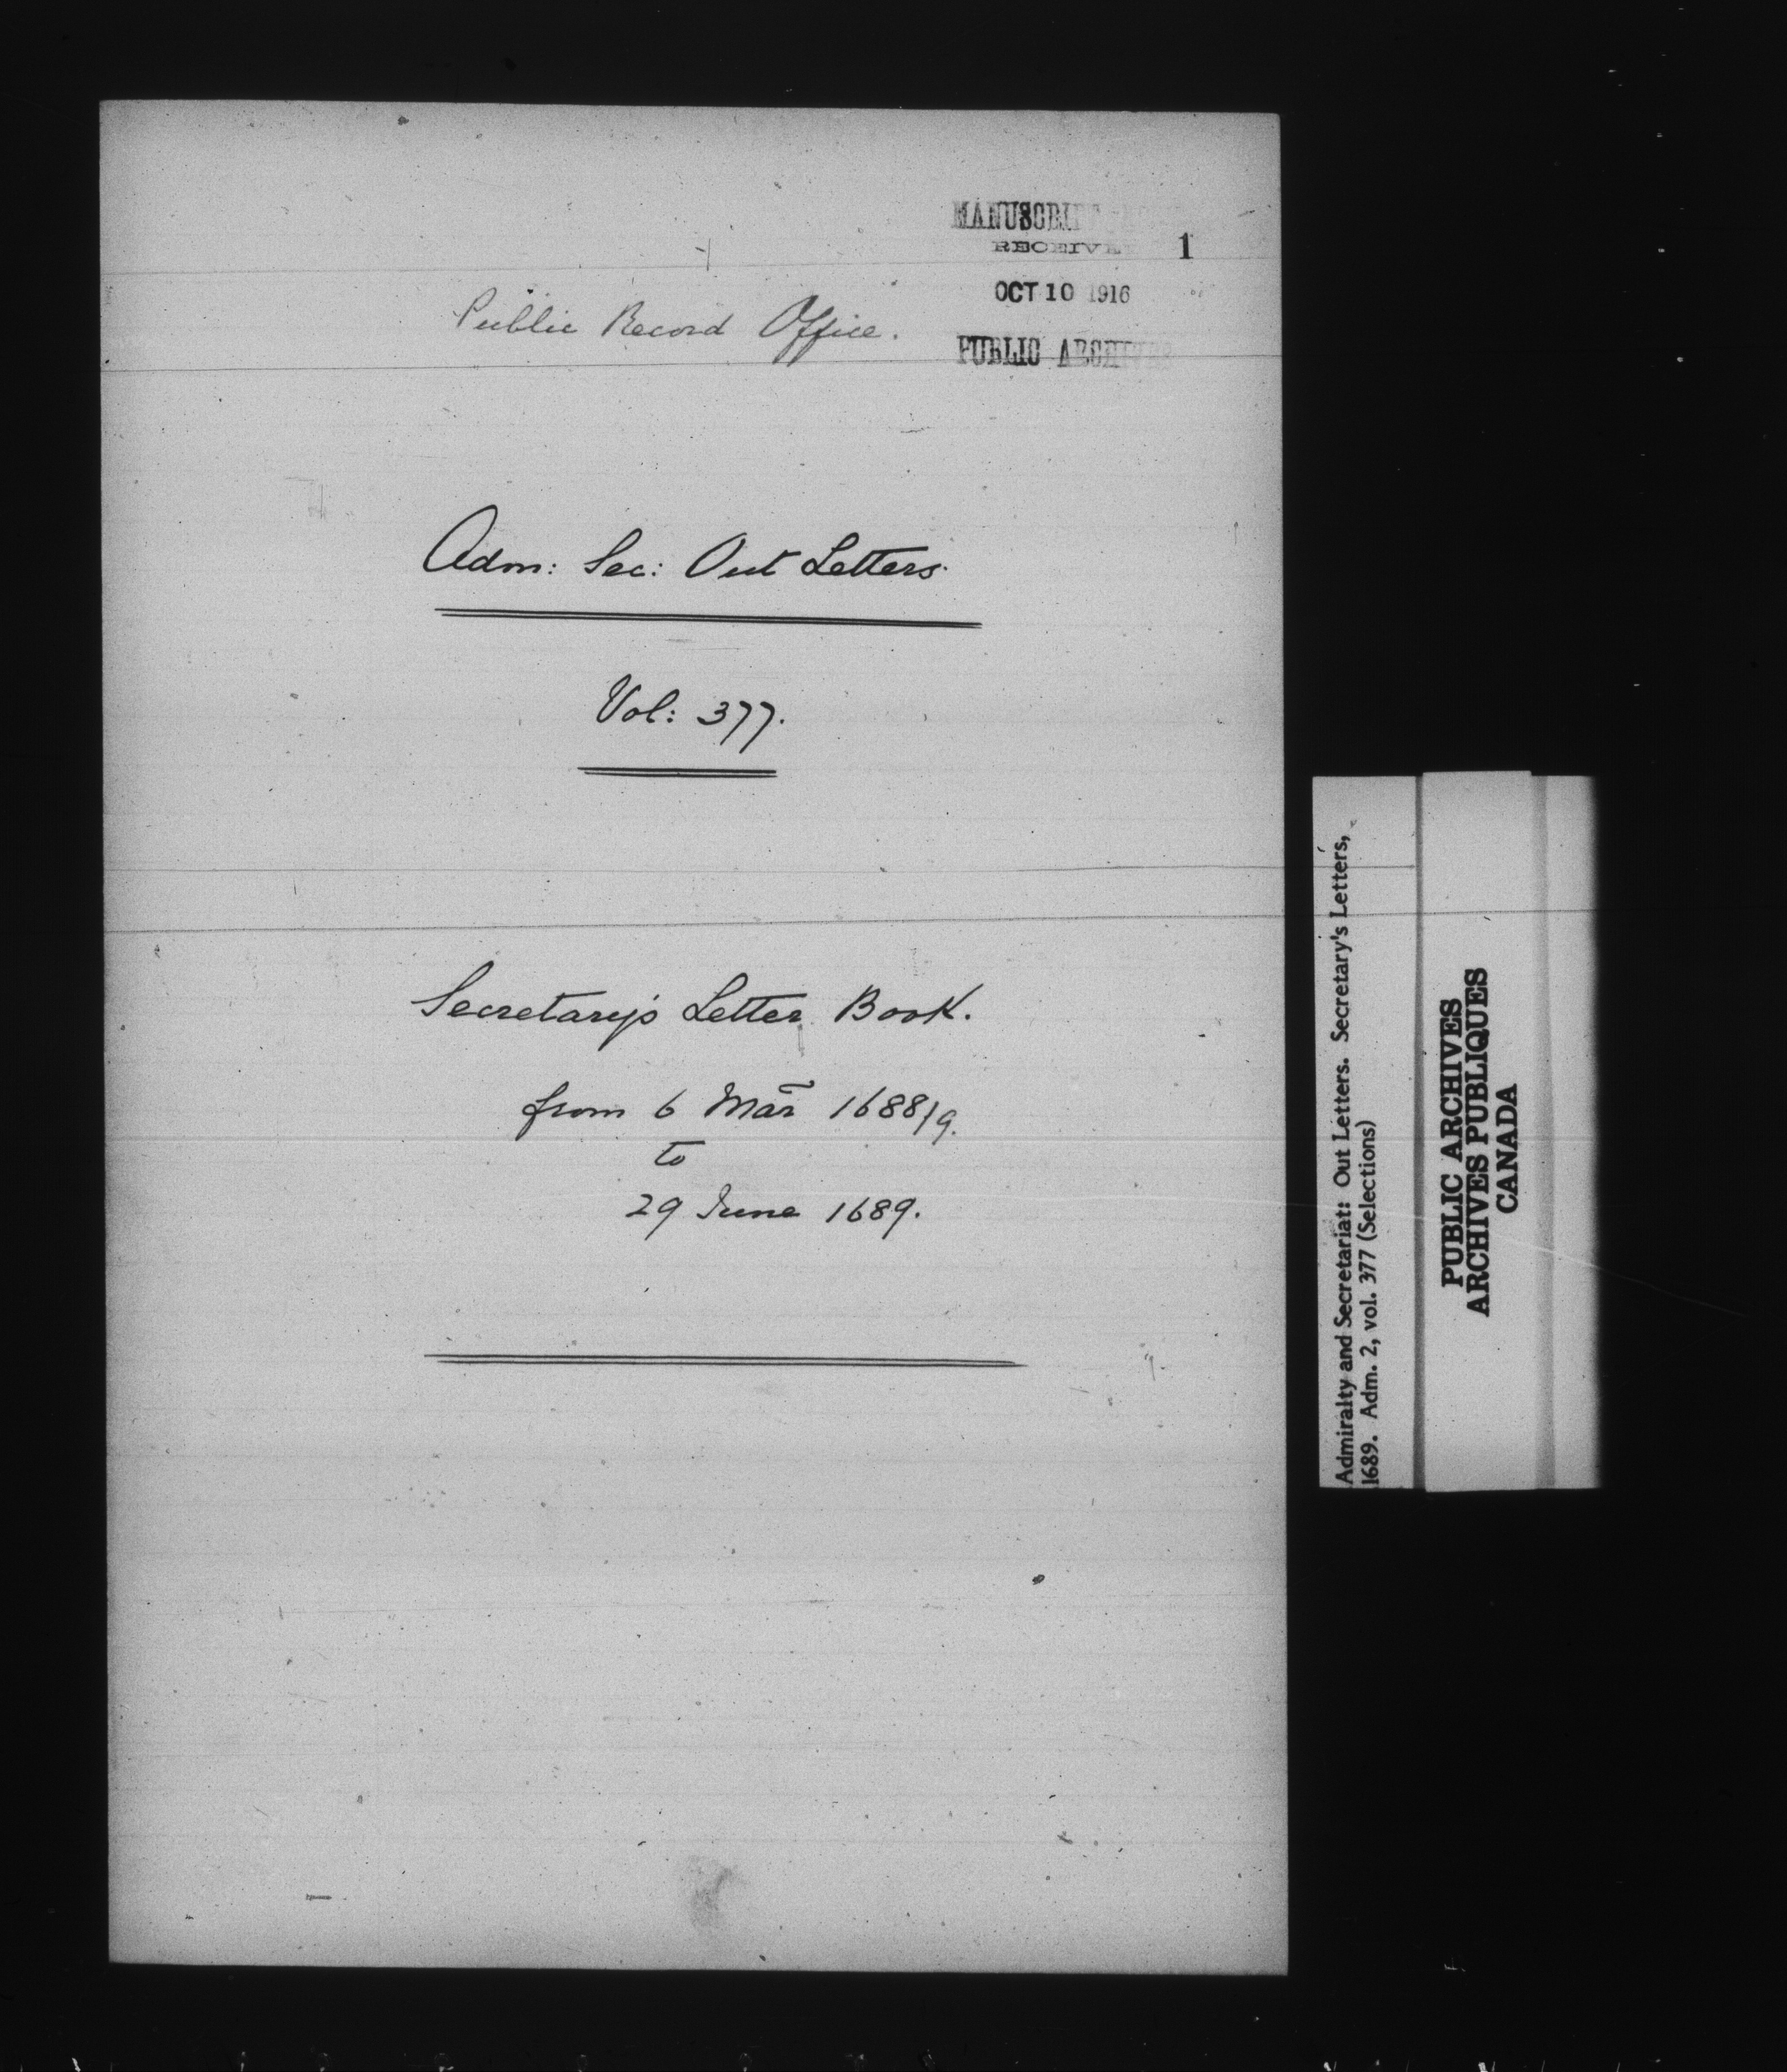 MANUSCRIPT
RECEIVE
1
OCT 10 1916
PUBLIC ARCHIVES
Public Record Office.
Adm: Sec: Out Letters.
Vol: 377.
Secretary's Letter Book.
from 6 Mar̄ 1688/9.
to
29 June 1689.
Admiralty and Secretariat: Out Letters. Secretary's Letters,
1689. Adm. 2, vol. 377 (Selections)
PUBLIC ARCHIVES
ARCHIVES PUBLIQUES
CANADA